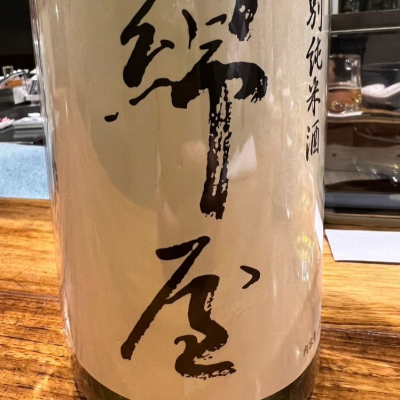 別純米酒
綿屋